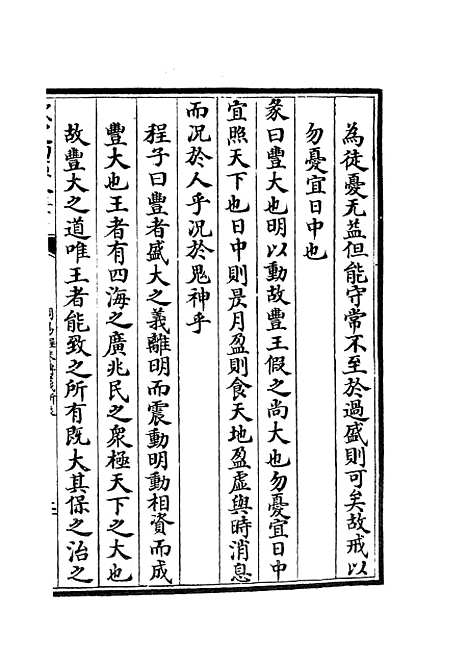 為徒憂无益但能守常不至於過盛則可矣故戒以
勿憂宜日中也
彖曰豐大也明以動故豐王假之尚大也勿憂宜日中
宜照天下也日中則昃月盈則食天地盈虛與時消息
而況於人乎況於鬼神乎
程子曰豐者盛大之義離明而震動明動相資而成
豐大也王者有四海之廣兆民之衆極天下之大也
故豐大之道唯王者能致之所有既大其保之治之